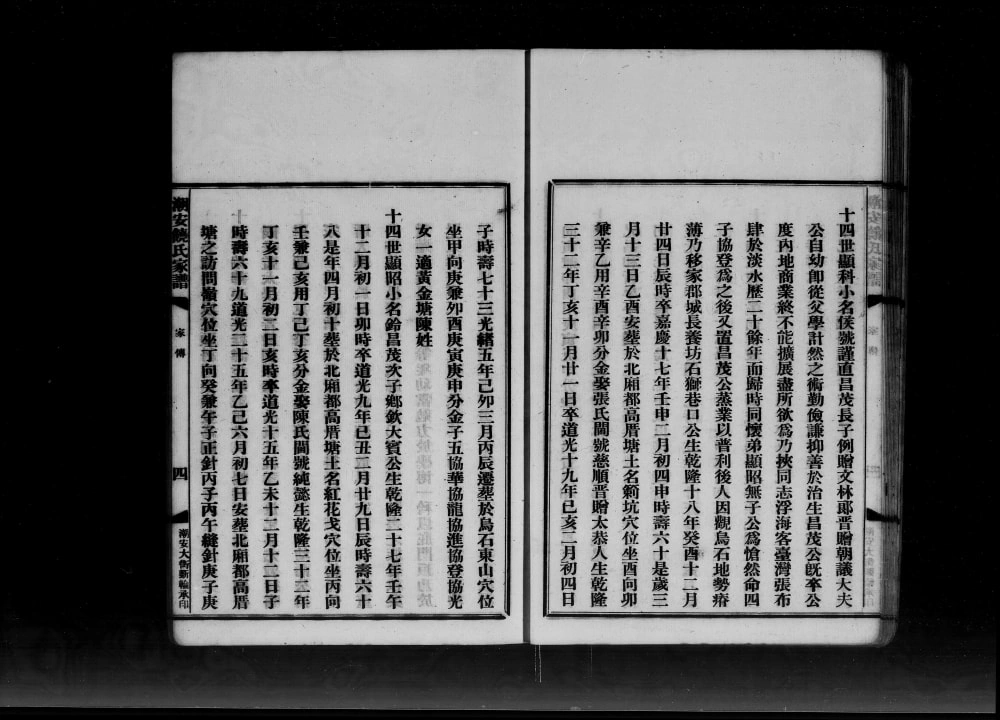 十四世顯科小名侯號謹直昌茂長子例贈文林郎晋贈朝議大夫
公自幼卽從父學計然之術勤儉謙抑善於治生昌茂公旣卒公
度內地商業終不能擴展盡所欲爲乃挾同志浮海客臺灣張布
肆於淡水歷二十餘年而歸時同懷弟顯昭無子公爲愴然命四
子協登爲之後又置昌茂公蒸業以普利後人因觀烏石地勢瘠
薄乃移家郡城長養坊石獅巷口公生乾隆十八年癸酉十二月
廿四日辰時卒嘉慶十七年壬申二月初四申時壽六十是歲三
月十三日乙酉安葬於北廂都高厝塘土名範坑穴位坐酉向卯
兼辛乙用辛酉辛卯分金娶張氏閫號慈順晋贈太恭人生乾隆
三十二年丁亥十一月廿一日卒道光十九年己亥二月初四日
子時壽七十三光緖五年己夘三月丙辰遷葬於烏石東山穴位
坐甲向庚兼夘酉庚寅庚申分金子五協華協龍協進協登協光
女一適黃金塘陳姓
十四世顯昭小名鈴昌茂次子鄉飮大賓公生乾隆二十七年壬午
十二月初一日卯時卒道光九年己丑二月廿九日辰時壽六十
八是年四月初十葬於北厢都高厝塘土名紅花戈穴位坐丙向
壬兼己亥用丁己丁亥分金娶陳氏閫號純懿生乾隆三十二年
丁亥十一月初二日亥時卒道光十五年乙未十二月十二日子
時壽六十九道光二十五年乙己六月初七日安葬北廂都高厝
塘之訪問嶺穴位坐丁向癸兼午子正針丙子丙午縫針庚子庚
潮安饒氏家譜
家傳
四
潮安大街新輪承印